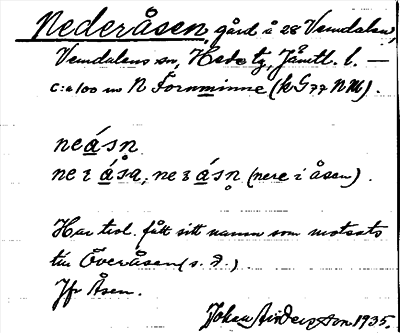 Nederåsen, gård å 28 Vemdalen,
Vemdalens sn, Hede tg, Jämtl. l. —
c:a 100 m N Fornminne (k G 77 NM).
neásn
ne ɛ ása, ne ɛ ásn (nere i åsen).
Har trol. fått sitt namn som motsats
till Överåsen (s. d.)
Jfr Åsen.
Johan Anderson 1935.